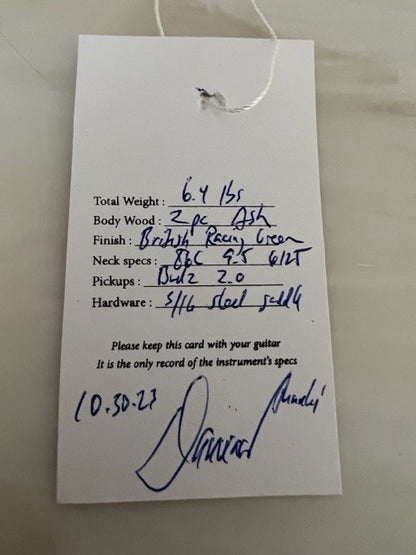 Total Weight : 6.4 lbs
Body Wood : 2 pc Ash
Finish : British Racing Green
Neck specs : 86C 9.5 6125
Pickups : 2.0
Hardware : 5/16 steel saddle
Please keep this card with your guitar
It is the only record of the instrument's specs
10.30.23